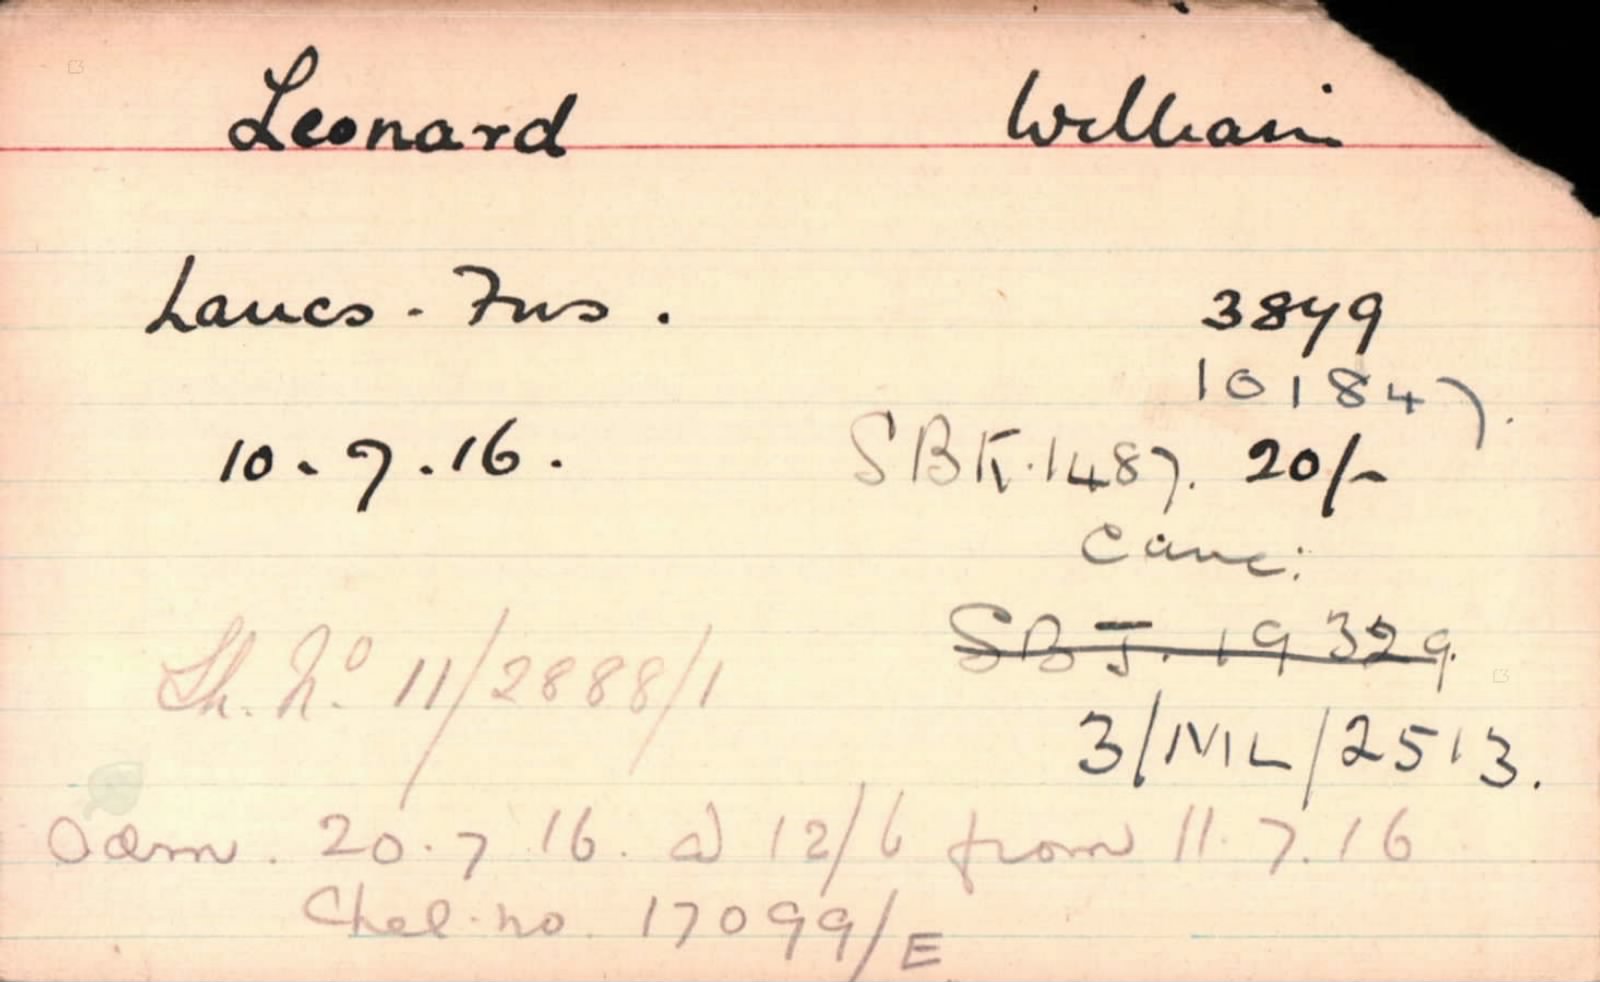 Leonard William
Lancs. Fus. 3879
101847.
10.7.16. SBK.1487. 20/-
Canc:
SBJ.19329.
Ch. No 11/2888/1
3/ML/2513.
20.7.16. a) 12/6 from 11.7.16
Chel. no. 17099/E